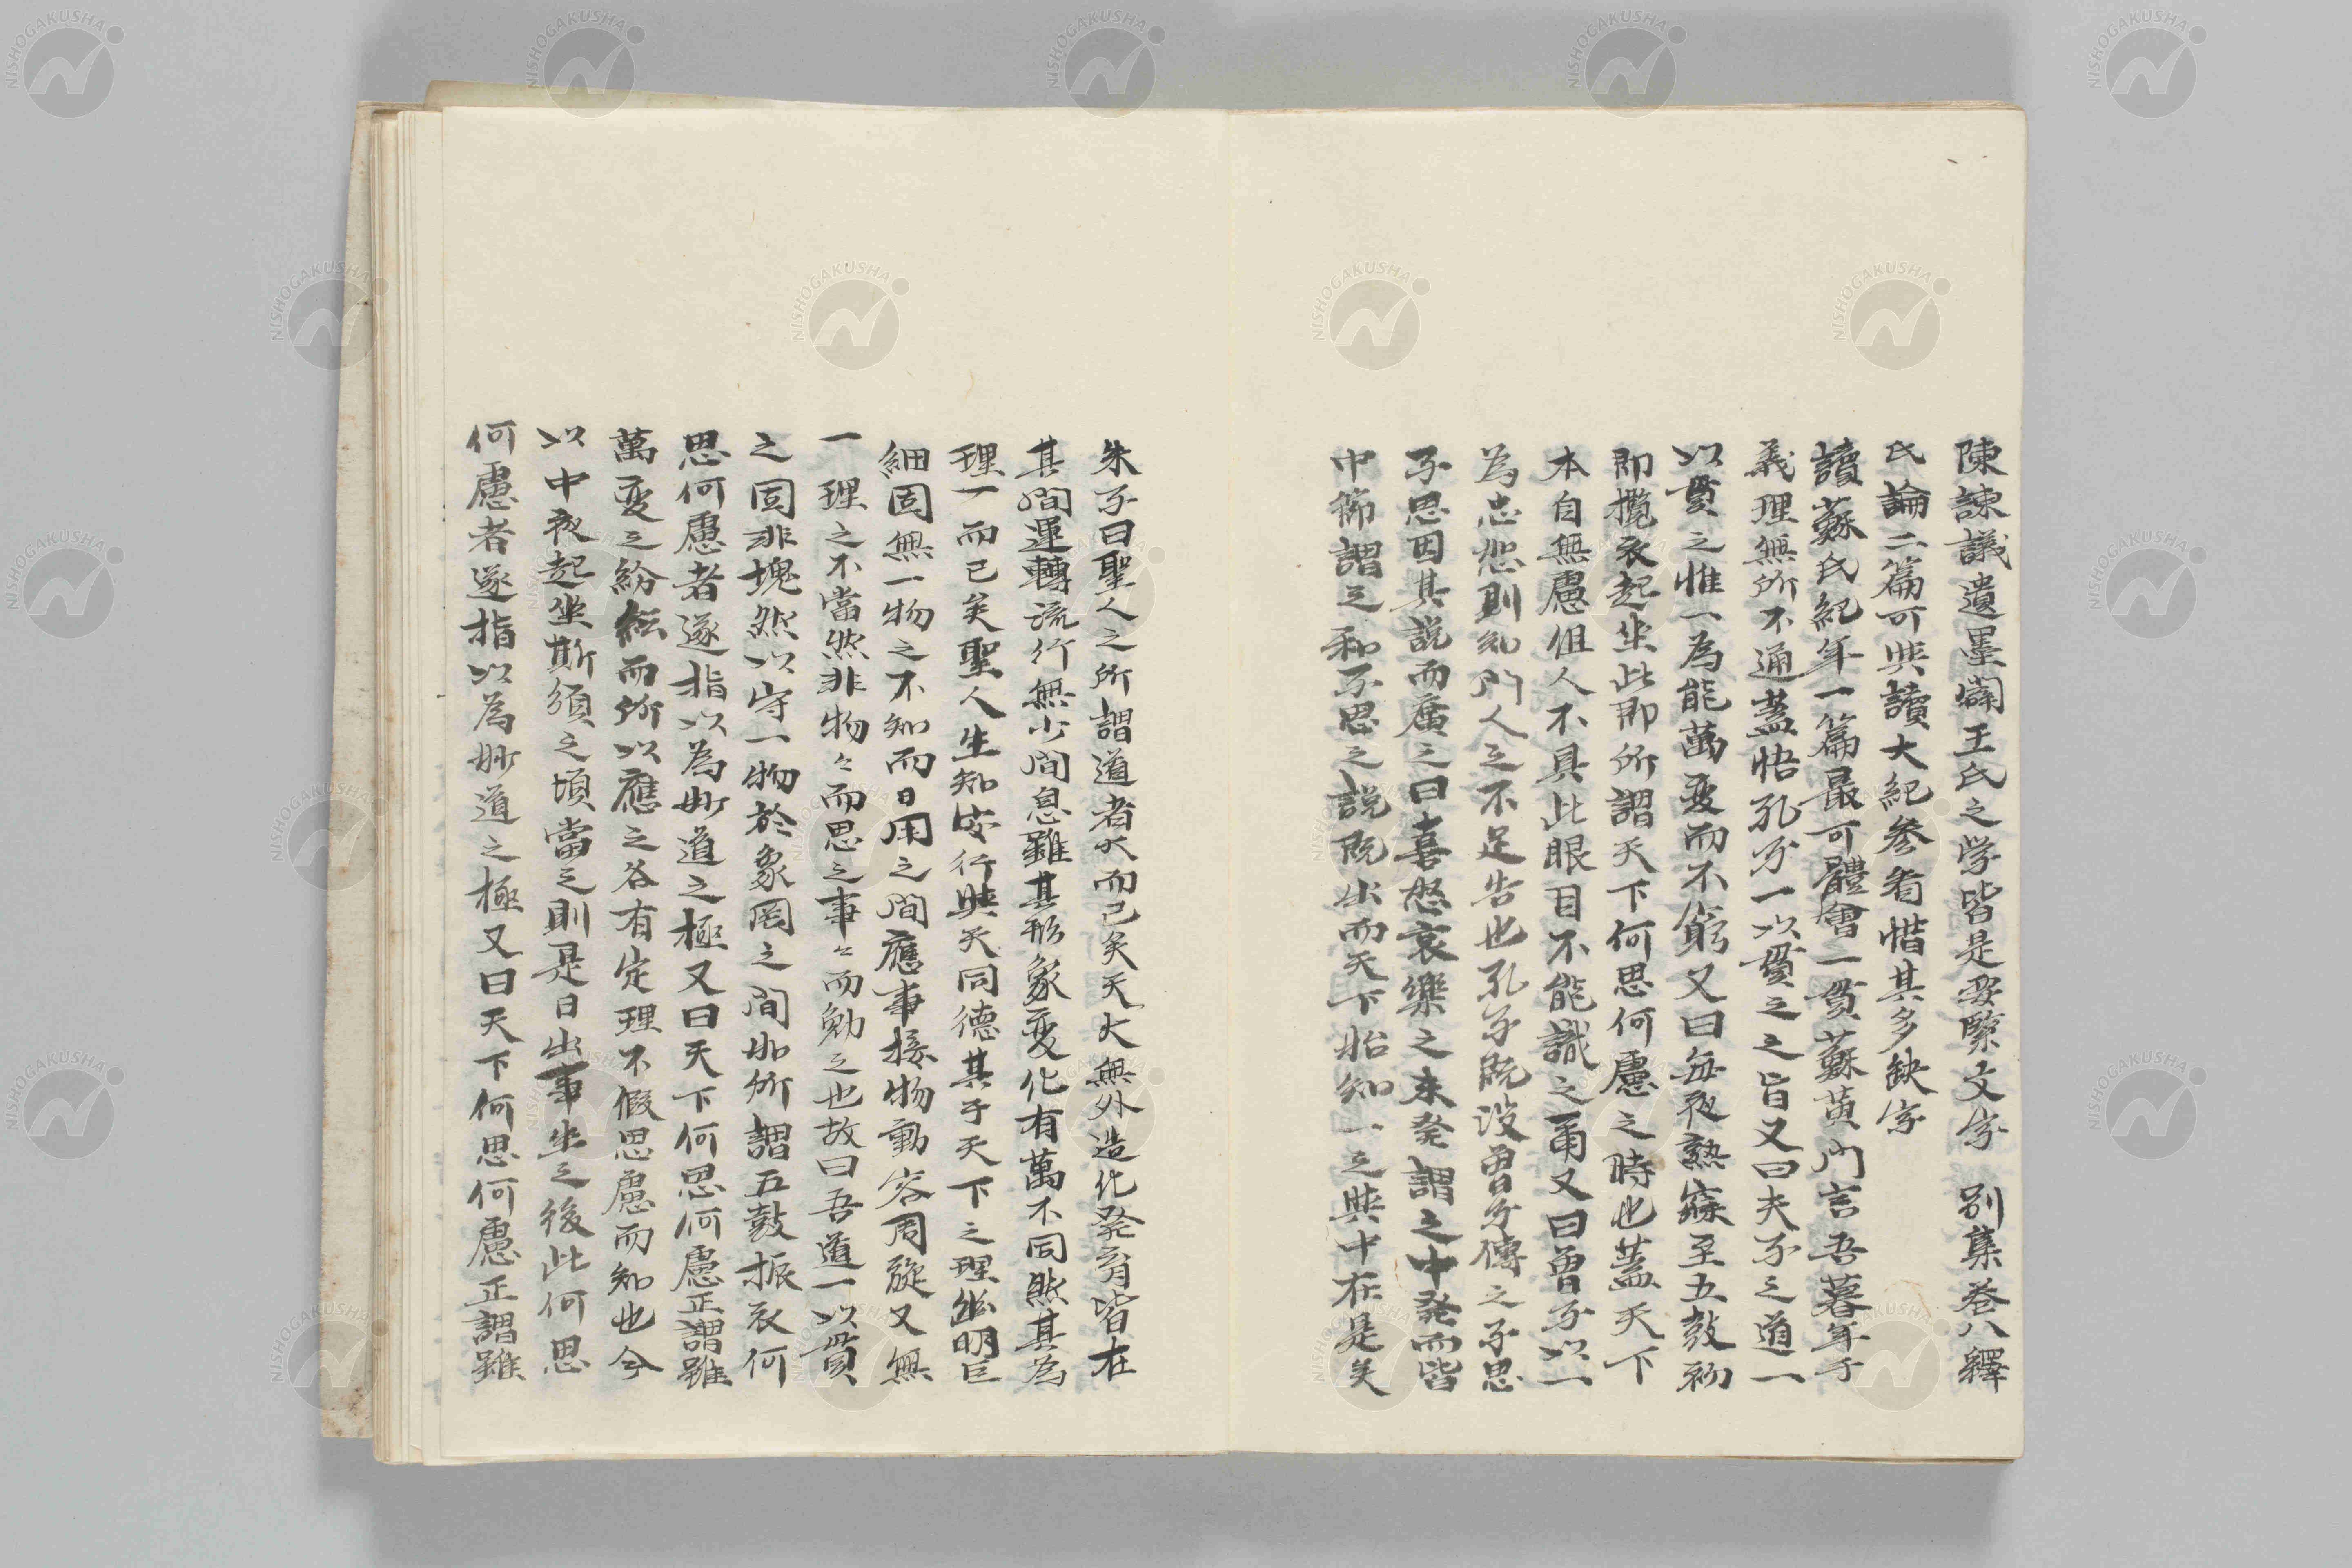 陳諌議遺墨闢王氏之学皆是要緊文字　別集巻八釋
氏論二篇可與讀大紀參看惜其多缺字
讀蘇氏紀年一篇最可體會一貫蘇黄門言吾暮年于
義理無所不通蓋悟孔子一以貫之之旨又曰夫子之道一
以貫之惟一為能萬変而不窮又曰毎夜熟寐至五鼓初
即攬衣起坐此即所謂天下何思何慮之時也蓋天下
本自無慮但人不具此眼目不能識之甫又曰曽子以一
為忠恕則知門人之不足告也孔子既没曽子傳之子思
子思因其説而廣之曰喜怒哀樂之未発謂之中発而皆
中節謂之和子思之説既出而天下始知一之與中在是矣
朱子曰聖人之所謂道者天而已矣天大無外造化発育皆在
其間運轉流行無少間息雖其形象変化有萬不同然其為
理一而已矣聖人生知安行與天同德其于天下之理幽明巨
細固無一物之不知而日用之間應事接物動容周旋又無
一理之不當然非物々而思之事々而勉之也故曰吾道一以貫
之固非塊然以守一物於象罔之間如所謂五鼓振衣何
思何慮者遂指以為妙道之極又曰天下何思何慮正謂雖
萬変之紛紜而所以應之各有定理不假思慮而知也今
以中夜起坐斯須之頃當之則是日出事生之後此何思
何慮者遂指以為妙道之極又曰天下何思何慮正謂雖
NISHOGAKUSHA